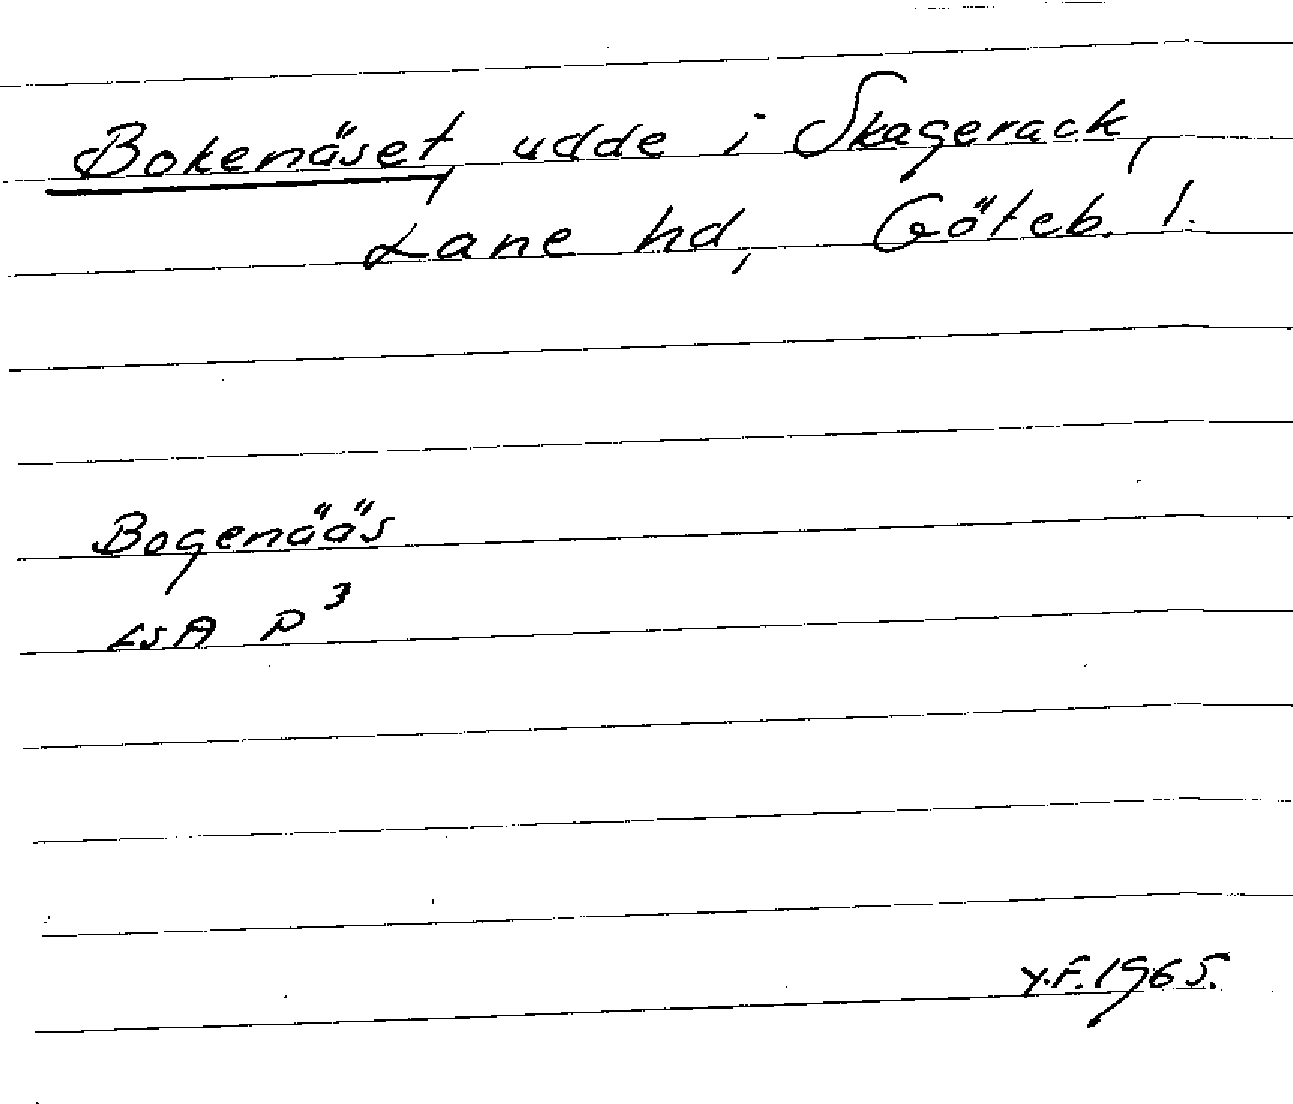 Bokenäset, udde i Skagerack,
Lane hd, Göteb. l.
Bogenääs
LSA P³
Y.F. 1965.